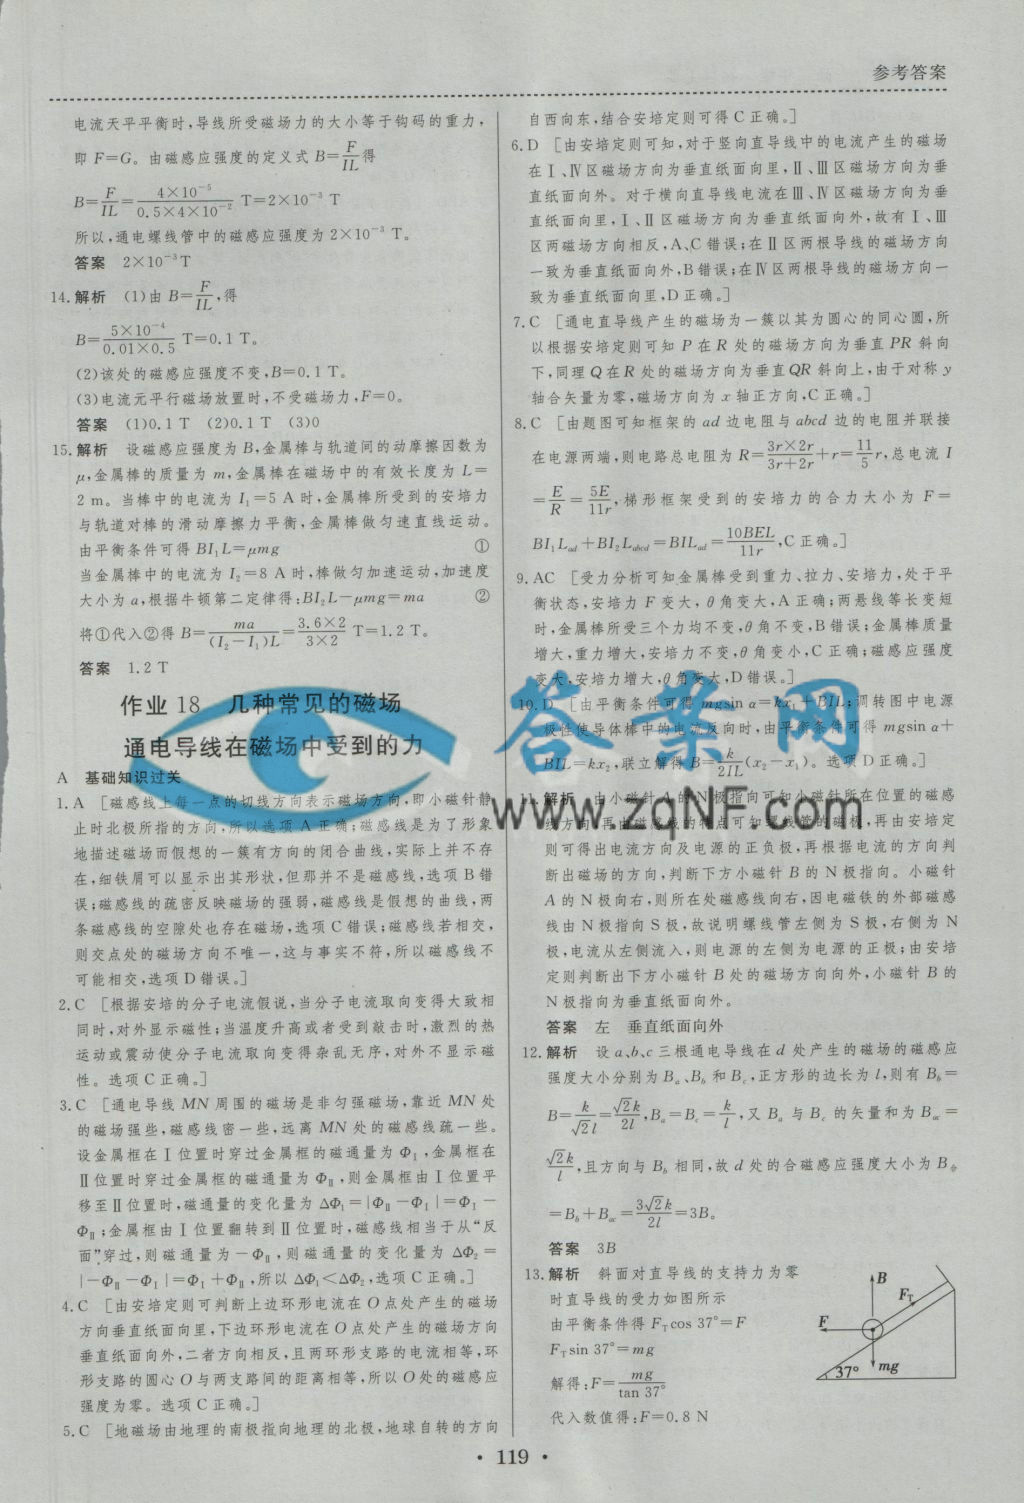 参考答案
电流天平平衡时,导线所受磁场力的大小等于钩码的重力,
即 F=G。由磁感应强度的定义式 B=F/IL 得
B=F/IL=4×10⁻⁵/0.5×4×10⁻² T=2×10⁻³ T
所以,通电螺线管中的磁感应强度为 2×10⁻³ T。
答案 2×10⁻³T
14.解析 (1)由 B=F/IL,得
B=5×10⁻⁴/0.01×0.5 T=0.1 T。
(2)该处的磁感应强度不变,B=0.1 T。
(3)电流元平行磁场放置时,不受磁场力,F=0。
答案 (1)0.1 T (2)0.1 T (3)0
15.解析 设磁感应强度为 B,金属棒与轨道间的动摩擦因数为
μ,金属棒的质量为 m,金属棒在磁场中的有效长度为 L=
2 m。当棒中的电流为 I₁=5 A 时,金属棒所受到的安培力
与轨道对棒的滑动摩擦力平衡,金属棒做匀速直线运动。
由平衡条件可得 BI₁L=μmg ①
当金属棒中的电流为 I₂=8 A 时,棒做匀加速运动,加速度
大小为 a,根据牛顿第二定律得:BI₂L-μmg=ma ②
将①代入②得 B=ma/(I₂-I₁)L=3.6×2/3×2 T=1.2 T。
答案 1.2 T
作业 18 几种常见的磁场
通电导线在磁场中受到的力
A 基础知识过关
1.A [磁感线上每一点的切线方向表示磁场方向,即小磁针静
止时北极所指的方向,所以选项 A 正确;磁感线是为了形象
地描述磁场而假想的一簇有方向的闭合曲线,实际上并不存
在,细铁屑可以显示出其形状,但那并不是磁感线,选项 B 错
误;磁感线的疏密反映磁场的强弱,磁感线是假想的曲线,两
条磁感线的空隙处也存在磁场,选项 C 错误;磁感线若相交,
则交点处的磁场方向不唯一,这与事实不符,所以磁感线不
可能相交,选项 D 错误。]
2.C [根据安培的分子电流假说,当分子电流取向变得大致相
同时,对外显示磁性;当温度升高或者受到敲击时,激烈的热
运动或震动使分子电流取向变得杂乱无序,对外不显示磁
性。选项 C 正确。]
3.C [通电导线 MN 周围的磁场是非匀强磁场,靠近 MN 处
的磁场强些,磁感线密一些,远离 MN 处的磁感线疏一些。
设金属框在Ⅰ位置时穿过金属框的磁通量为 Φ₁,金属框在
Ⅱ位置时穿过金属框的磁通量为 ΦⅡ,则金属框由Ⅰ位置平
移至Ⅱ位置时,磁通量的变化量为 ΔΦ₁=|ΦⅡ-ΦⅠ|=ΦⅠ-
ΦⅡ;金属框由Ⅰ位置翻转到Ⅱ位置时,磁感线相当于从“反
面”穿过,则磁通量为-ΦⅡ,则磁通量的变化量为 ΔΦ₂=
|-ΦⅡ-ΦⅠ|=ΦⅠ+ΦⅡ,所以 ΔΦ₁<ΔΦ₂,选项 C 正确。]
4.C [由安培定则可判断上边环形电流在 O 点处产生的磁场
方向垂直纸面向里,下边环形电流在 O 点处产生的磁场方向
垂直纸面向外,二者方向相反,且两环形支路的电流相等,环
形支路的圆心 O 与两支路间的距离相等,所以 O 处的磁感应
强度为零。选项 C 正确。]
5.C [地磁场由地理的南极指向地理的北极,地球自转的方向
自西向东,结合安培定则可得 C 正确。]
6.D [由安培定则可知,对于竖向直导线中的电流产生的磁场
在Ⅰ、Ⅳ区磁场方向为垂直纸面向里,Ⅱ、Ⅲ区磁场方向为垂
直纸面向外。对于横向直导线电流在Ⅲ、Ⅳ区磁场方向为垂
直纸面向里,Ⅰ、Ⅱ区磁场方向为垂直纸面向外,故有Ⅰ、Ⅲ
区两磁场方向相反,A、C 错误;在Ⅱ区两根导线的磁场方向
一致为垂直纸面向外,B 错误;在Ⅳ区两根导线的磁场方向一
致为垂直纸面向里,D 正确。]
7.C [通电直导线产生的磁场为一簇以其为圆心的同心圆,所
以根据安培定则可知 P 在 R 处的磁场方向为垂直 PR 斜向
下,同理 Q 在 R 处的磁场方向为垂直 QR 斜向上,由于对称 y
轴合矢量为零,磁场方向为 x 轴正方向,C 正确。]
8.C [由题图可知框架的 ad 边电阻与 abcd 边的电阻并联接
在电源两端,则电路总电阻为 R=3r×2r/3r+2r+r=11/5 r,总电流 I
=E/R=5E/11r,梯形框架受到的安培力的合力大小为 F=
BI₁Lad+BI₂Labcd=BILad=10BEL/11r,C 正确。]
9.AC [受力分析可知金属棒受到重力、拉力、安培力,处于平
衡状态,安培力 F 变大,θ 角变大,A 正确;两悬线等长变短
时,金属棒所受三个力均不变,θ 角不变,B 错误;金属棒质量
增大,重力增大,安培力不变,θ 角变小,C 正确;磁感应强度
变大,安培力增大,θ 角变大,D 错误。]
10.D [由平衡条件可得 mgsin α=kx₁+BIL;调转图中电源
极性使导体棒中的电流反向时,由平衡条件可得 mgsin α+
BIL=kx₂,联立解得 B=k/2IL(x₂-x₁)。选项 D 正确。]
11.解析 由小磁针 A 的 N 极指向可知小磁针所在位置的磁感
线方向,再由磁感线的特点可知螺线管的磁极,再由安培定
则可得出电流方向及电源的正负极,再根据电流的方向判
断出磁场的方向,判断下方小磁针 B 的 N 极指向。小磁针
A 的 N 极向右,则所在处磁感线向右,因电磁铁的外部磁感
线由 N 极指向 S 极,故说明螺线管左侧为 S 极,右侧为 N
极,电流从左侧流入,则电源的左侧为电源的正极;由安培
定则判断出下方小磁针 B 处的磁场方向向外,小磁针 B 的
N 极指向为垂直纸面向外。
答案 左 垂直纸面向外
12.解析 设 a、b、c 三根通电导线在 d 处产生的磁场的磁感应
强度大小分别为 Ba、Bb 和 Bc,正方形的边长为 l,则有 Bb=
B=k/√2l=√2k/2l,Ba=Bc=k/l,又 Ba 与 Bc 的矢量和为 Bac=
√2k/l,且方向与 Bb 相同,故 d 处的合磁感应强度大小为 B合
=Bb+Bac=3√2k/2l=3B。
答案 3B
13.解析 斜面对直导线的支持力为零
时直导线的受力如图所示
由平衡条件得 FTcos 37°=F
FTsin 37°=mg
解得:F=mg/tan 37°
代入数值得:F=0.8 N
B
FT
F
mg
37°
答案网
www.zqNF.com
• 119 •